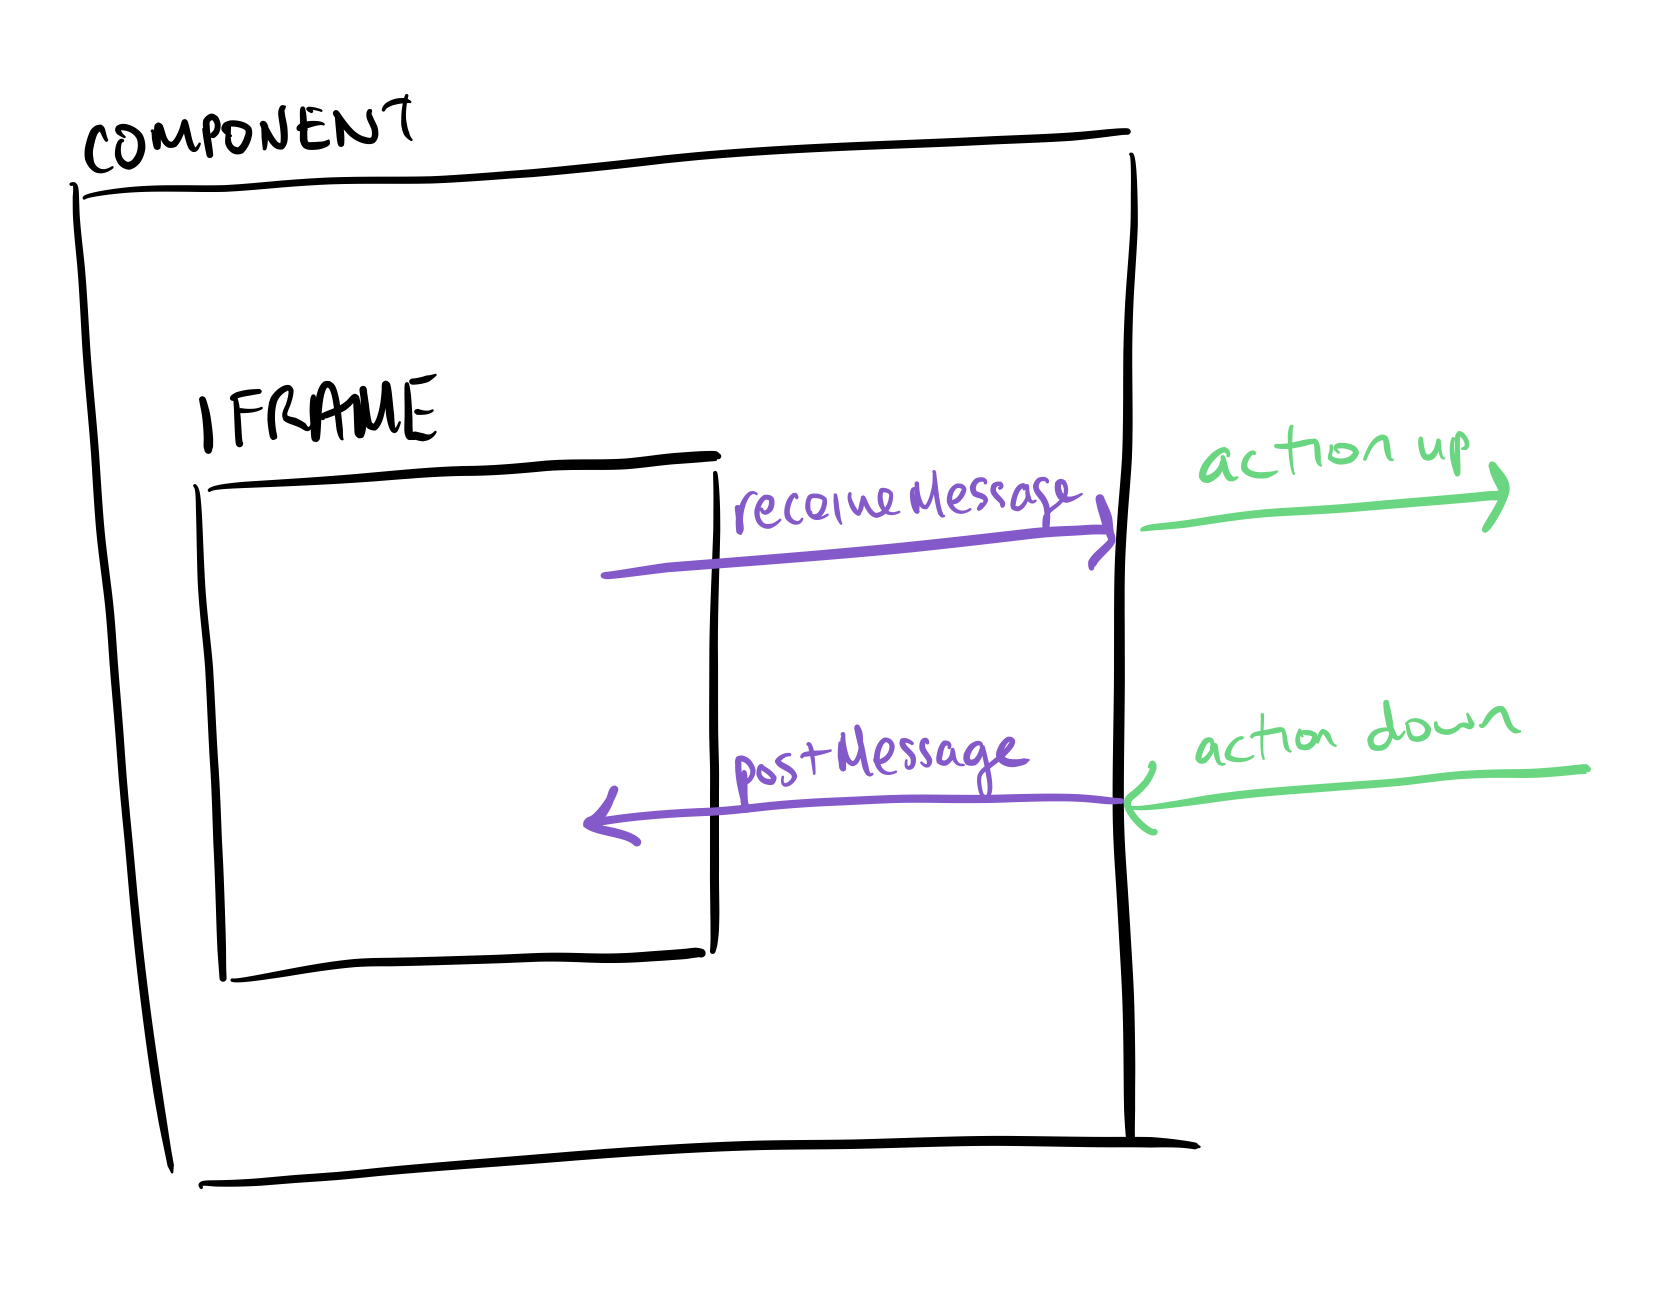 COMPONENT
IFRAME
receiveMessage
action up
postMessage
action down